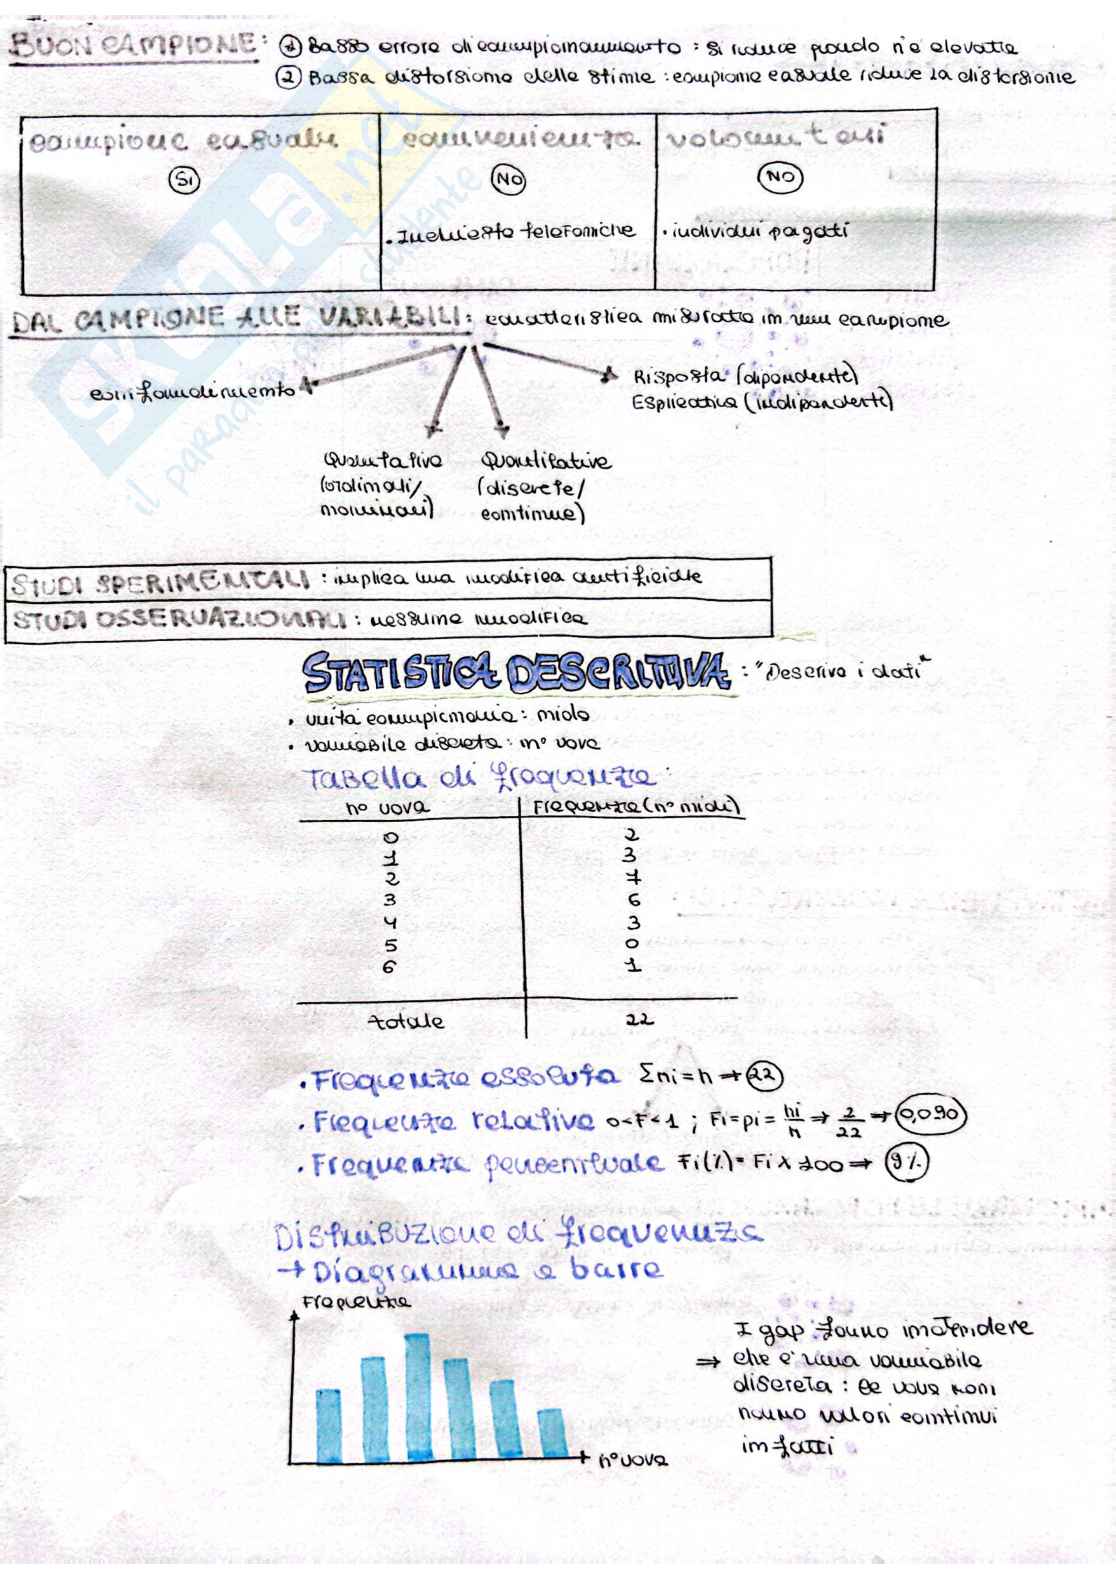 BUON CAMPIONE: 1 Basso errore di campionamento: si riduce quando n'è elevata
2 Bassa distorsione delle stime: campione casuale riduce la distorsione
campione casuale convenienza volontari
SI NO NO
• Inchieste telefoniche • individui pagati
DAL CAMPIONE ALLE VARIABILI: caratteristica misurata in un campione
confondimento
Risposta (dipendente)
Esplicativa (indipendente)
Qualitative Quantitative
(ordinali/ (discrete/
nominali) continue)
STUDI SPERIMENTALI: implica una modifica artificiale
STUDI OSSERVAZIONALI: nessuna modifica
STATISTICA DESCRITTIVA: "Descrivo i dati"
• unità campionaria: nido
• variabile discreta: n° uova
Tabella di frequenza:
n° uova Frequenza (n° nidi)
0 2
1 3
2 7
3 6
4 3
5 0
6 1
totale 22
• Frequenza assoluta Σni = n ⇒ 22
• Frequenza relativa 0<F<1 ; Fi=pi= ni/n ⇒ 2/22 ⇒ 0,090
• Frequenza percentuale Fi(%) = Fi x 100 ⇒ 9%
Distribuzione di frequenza
→ Diagramma a barre
Frequenza
n° uova
I gap fanno intendere
⇒ che è una variabile
discreta: le uova non
hanno valori continui
infatti
SKUOLA.net
il paradiso dello studente